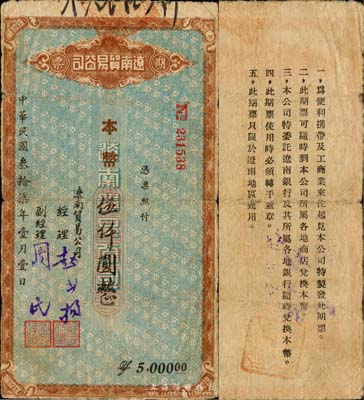 遼南貿易公司
期
票
No 231538
憑票照付
本幣
伍仟圓整
遼南貿易公司
經理
副經理
周民
中華民國叁拾柒年壹月壹日
$ 5.00000
一，爲便利携帶及工商業來往起見本公司特製發此期票。
二，此期票可隨時到本公司所屬各地商店兌換本幣。
三，本公司特委託遼南銀行及其所屬各地銀行隨時兌換本幣。
四，此期票使用時必須轉手蓋章。
五，此期票只限於遼南地區適用。